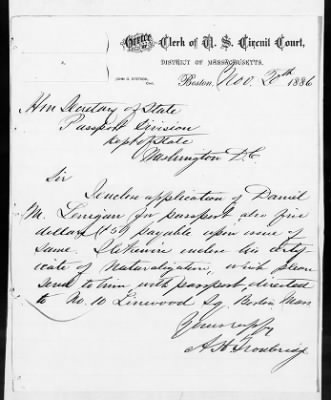 Office of Clerk of U. S. Circuit Court,
DISTRICT OF MASSACHUSETTS.
JOHN G. STETSON,
Clerk.
Boston, Nov. 20th 1886
Hon Secretary of State
Passport Division
Dept of State
Washington D.C.
Sir
I enclose application of Daniel
M. for passport, also five
dollars ($5) payable upon issue of
same. I likewise enclose his certif
icate of Naturalization, wish please
send to him, with passport, directed
to No. 10 Linwood Sq. Boston Mass
Yours respy
A. H. Trowbridge